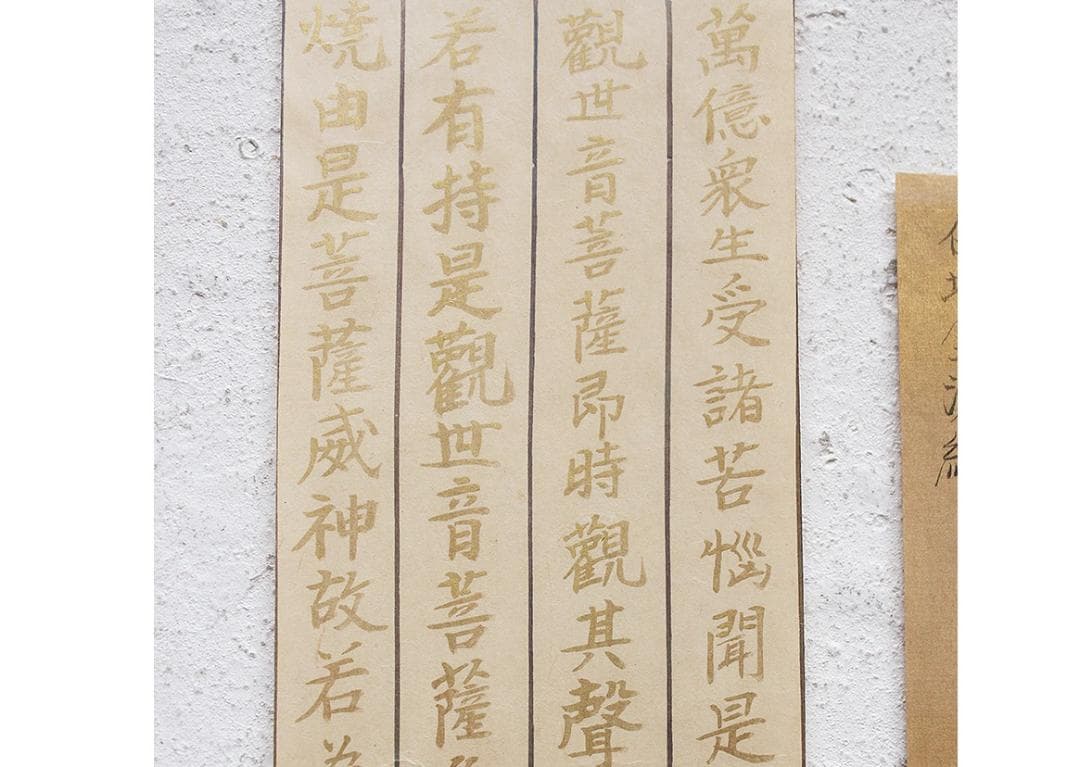 萬億衆生受諸苦惱聞是
觀世音菩薩即時觀其聲
若有持是觀世音菩薩
燒由是菩薩威神故若